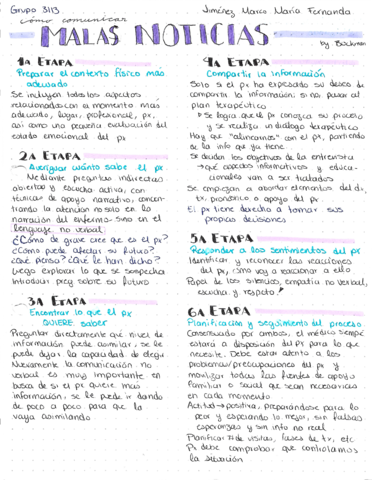 Grupo 3113
Jiménez Marco María Fernanda
cómo comunicar
MALAS NOTICIAS
by Buckman
1a ETAPA
Preparar el contexto físico más
adecuado
Se incluyen todos los aspectos
relacionados con a momento más
adecuado, lugar, profesional, px,
así como una pequeña evaluación del
estado emocional del px
2a ETAPA
Averiguar cuánto sabe el px
Mediante preguntas indirectas
abiertas y escucha activa, con
técnicas de apoyo narrativo, concen-
trando la atención no sólo en la
narración del enfermo sino en el
lenguaje no verbal.
¿Cómo de grave cree que es el px?
¿Cómo puede afectar su futuro?
¿Qué piensa? ¿Qué le han dicho?
Luego explorar lo que se sospecha
introducir preg sobre su futuro
3a ETAPA
Encontrar lo que el px
QUIERE saber
Preguntar directamente qué nivel de
información puede asimilar, se le
puede dejar la capacidad de elegir
Nuevamente la comunicación no
verbal es muy importante en
busca de si el px quiere más
información, se le puede ir dando
de poco a poco para que la
vaya asimilando
4a ETAPA
Compartir la información
Sólo si el px ha expresado su deseo de
compartir la información; si no, pasar al
plan terapéutico
Se logra que el px conozca su proceso
y se realiza un diálogo terapéutico
Hay que "alinearnos" con el px, partiendo
de la info que ya tiene
Se deciden los objetivos de la entrevista
→ qué aspectos informativos y educa-
cionales van a ser tratados
Se empiezan a abordar elementos del dx,
tx, pronóstico o apoyo del px
El px tiene derecho a tomar sus
propias decisiones
5a ETAPA
Responder a los sentimientos del px
Identificar y reconocer las reacciones
del px, cómo voy a reaccionar a ello
Papel de los silencios, empatía no verbal,
escucha y respeto!
6a ETAPA
Planificación y seguimiento del proceso
Consensuado por ambos, el médico siempre
estará a disposición del px para lo que
necesite. Debe estar atento a los
problemas/preocupaciones del px y
movilizar todas las fuentes de apoyo
familiar o social que sean necesarias
en cada momento
Actitud → positiva, preparándose para lo
peor y esperando lo mejor, sin falsas
esperanzas y sin info no real
Planificar # de visitas, fases de tx, etc
Px debe comprobar que controlamos
la situación